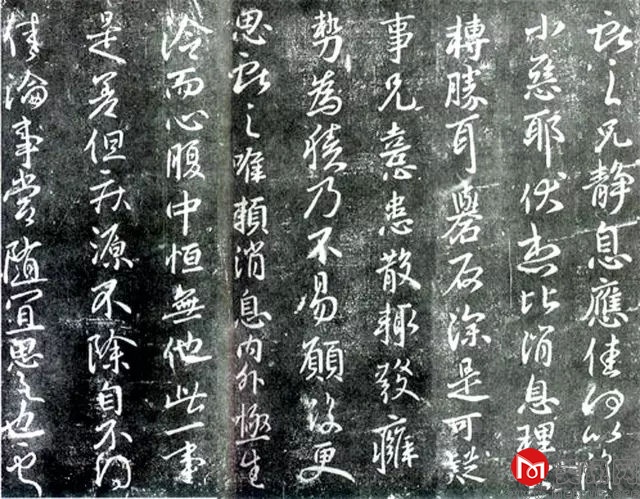 獻之兄靜息應佳何以復
小惡耶伏想比消息理
轉勝耳礜石深是可疑
事兄憙患散輒發癰
為積乃不易願復更
思獻之唯賴消息內外極生
冷而心腹中恒無他此一事
是差但疾源不除自不得
佳論事當隨宜思之也